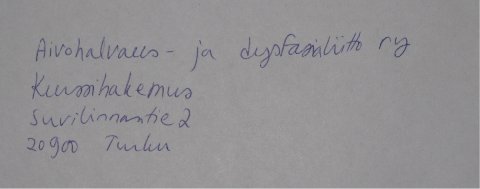 Aivohalvaus- ja dysfasialiitto ry
Kurssihakemus
Suvilinnantie 2
20900 Turku